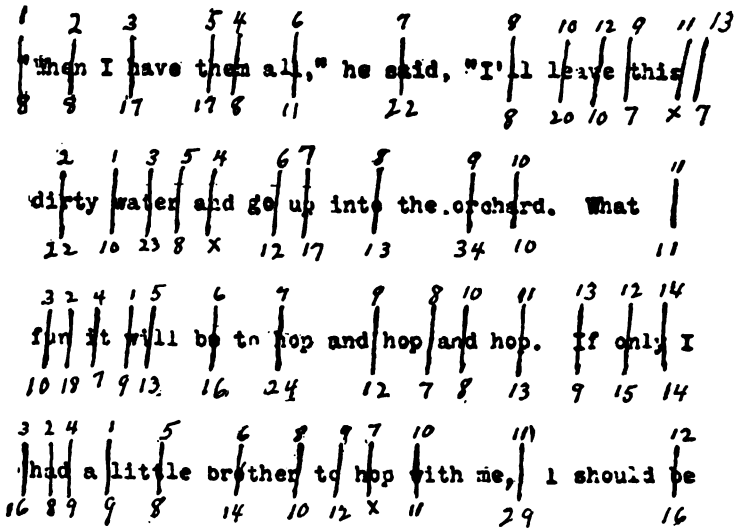 1 2 3 5 4 6 7 8 10 12 9 11 13
"When I have them all," he said, "I'll leave this
8 8 17 17 8 11 22 8 20 10 7 x 7
2 1 3 5 4 6 7 8 9 10 11
dirty water and go up into the orchard. What
22 10 23 8 x 12 17 13 34 10 11
3 2 4 1 5 6 7 9 8 10 11 13 12 14
fun it will be to hop and hop and hop. If only I
10 18 7 9 13 16 24 12 7 8 13 9 15 14
3 2 4 1 5 6 8 9 7 10 11 12
had a little brother to hop with me, I should be
16 8 9 9 8 14 10 12 x 11 29 16